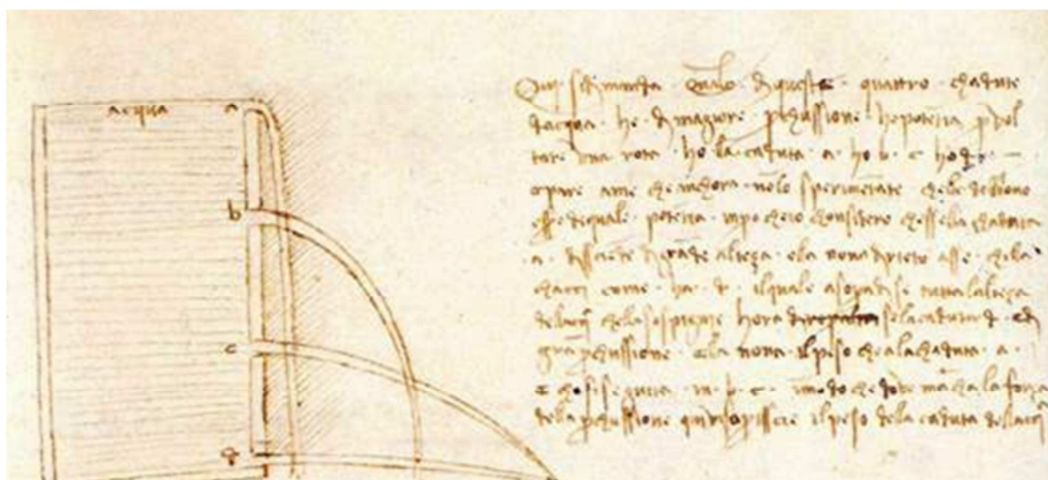 acqua a
b
c
Qui si dimanda quale di queste quattro chadute
dacqua he di magiore perchussione he potentia per vol
tare una rota ho la caduta a ho b c ho d
pare a me che anchora non lo sperimentate che le debbono
essere dequale potentia chonsidero chessella chaduta
a disciende di grande alteza ela non a dirieto asse chi la
chacci come ha d il quale a sopra di se tutta lalteza
dellacq che la sospignie hora se la caduta d
gran perchussione ela non a il peso che a la chaduta a
E chosi seguita in b c in modo che dove mancha la forza
della perchussione quivi il peso della caduta dellacq